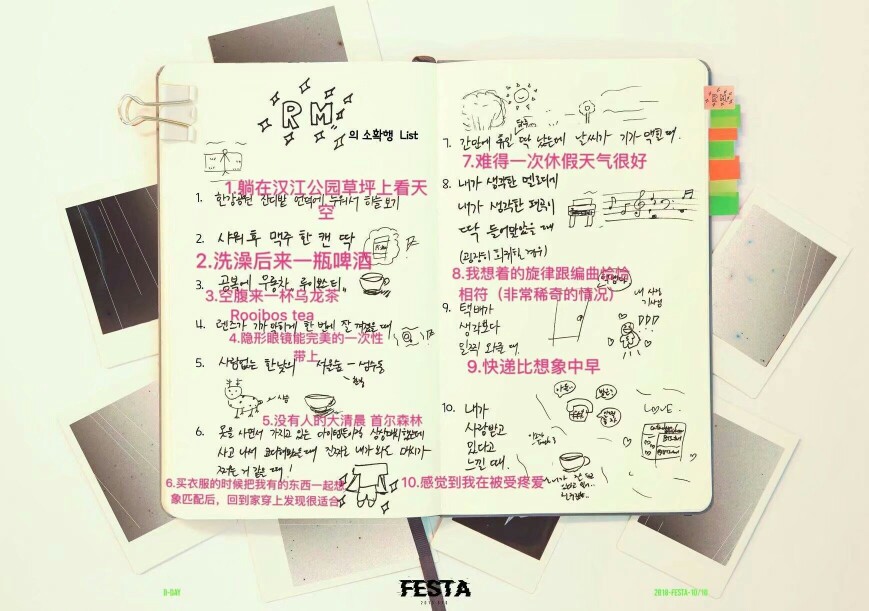 RM
의 소확행 List
1. 한강공원 잔디밭 언덕에 누워서 하늘보기
1.躺在汉江公园草坪上看天
空
2. 샤워 후 맥주 한 캔 딱
2.洗澡后来一瓶啤酒
3. 공복에 우롱차 루이보스티.
3.空腹来一杯乌龙茶
Rooibos tea
4. 렌즈가 기가막히게 한 번에 잘 껴졌을 때
4.隐形眼镜能完美的一次性
带上
5. 사람없는 한낮의 서울숲 - 성수동
5.没有人的大清晨 首尔森林
6. 옷을 사면서 가지고 있는 아이템들이랑 상상매치했는데
사고 나서 코디해봤을 때 진짜로 내가 와
찌는 거 같을 때!
6.买衣服的时候把我有的东西一起想
象匹配后，回到家穿上发现很适合
7. 간만에 휴일 딱 났는데 날씨가 기가 맥힐 때.
7.难得一次休假天气很好
8. 내가 생각한 멜로디
내가 생각한 편곡이
딱 들어맞았을 때
(굉장히 희귀한 경우)
8.我想着的旋律跟编曲恰恰
相符（非常稀奇的情况）
9. 택배가
생각보다
일찍 와줄 때
9.快递比想象中早
내 사랑
기사님
10. 내가
사랑받고
있다고
느낄 때.
10.感觉到我在被受疼爱
LOVE.
D-DAY
FESTA
2018-FESTA-10/10